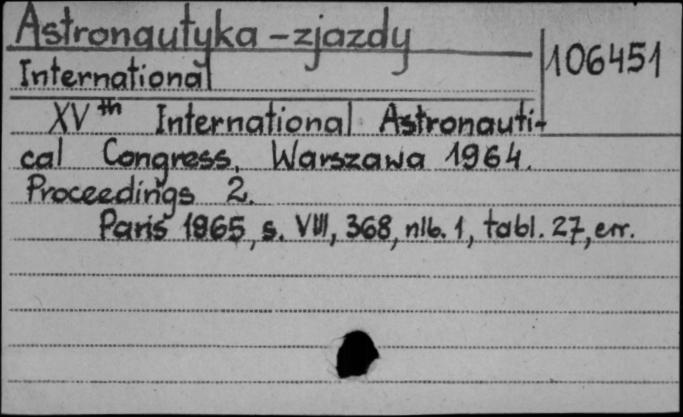 Astronautyka - zjazdy
106451
International
XVth International Astronauti-
cal Congress, Warszawa 1964.
Proceedings 2.
Paris 1965, s. VIII, 368, nlb. 1, tabl. 27, err.